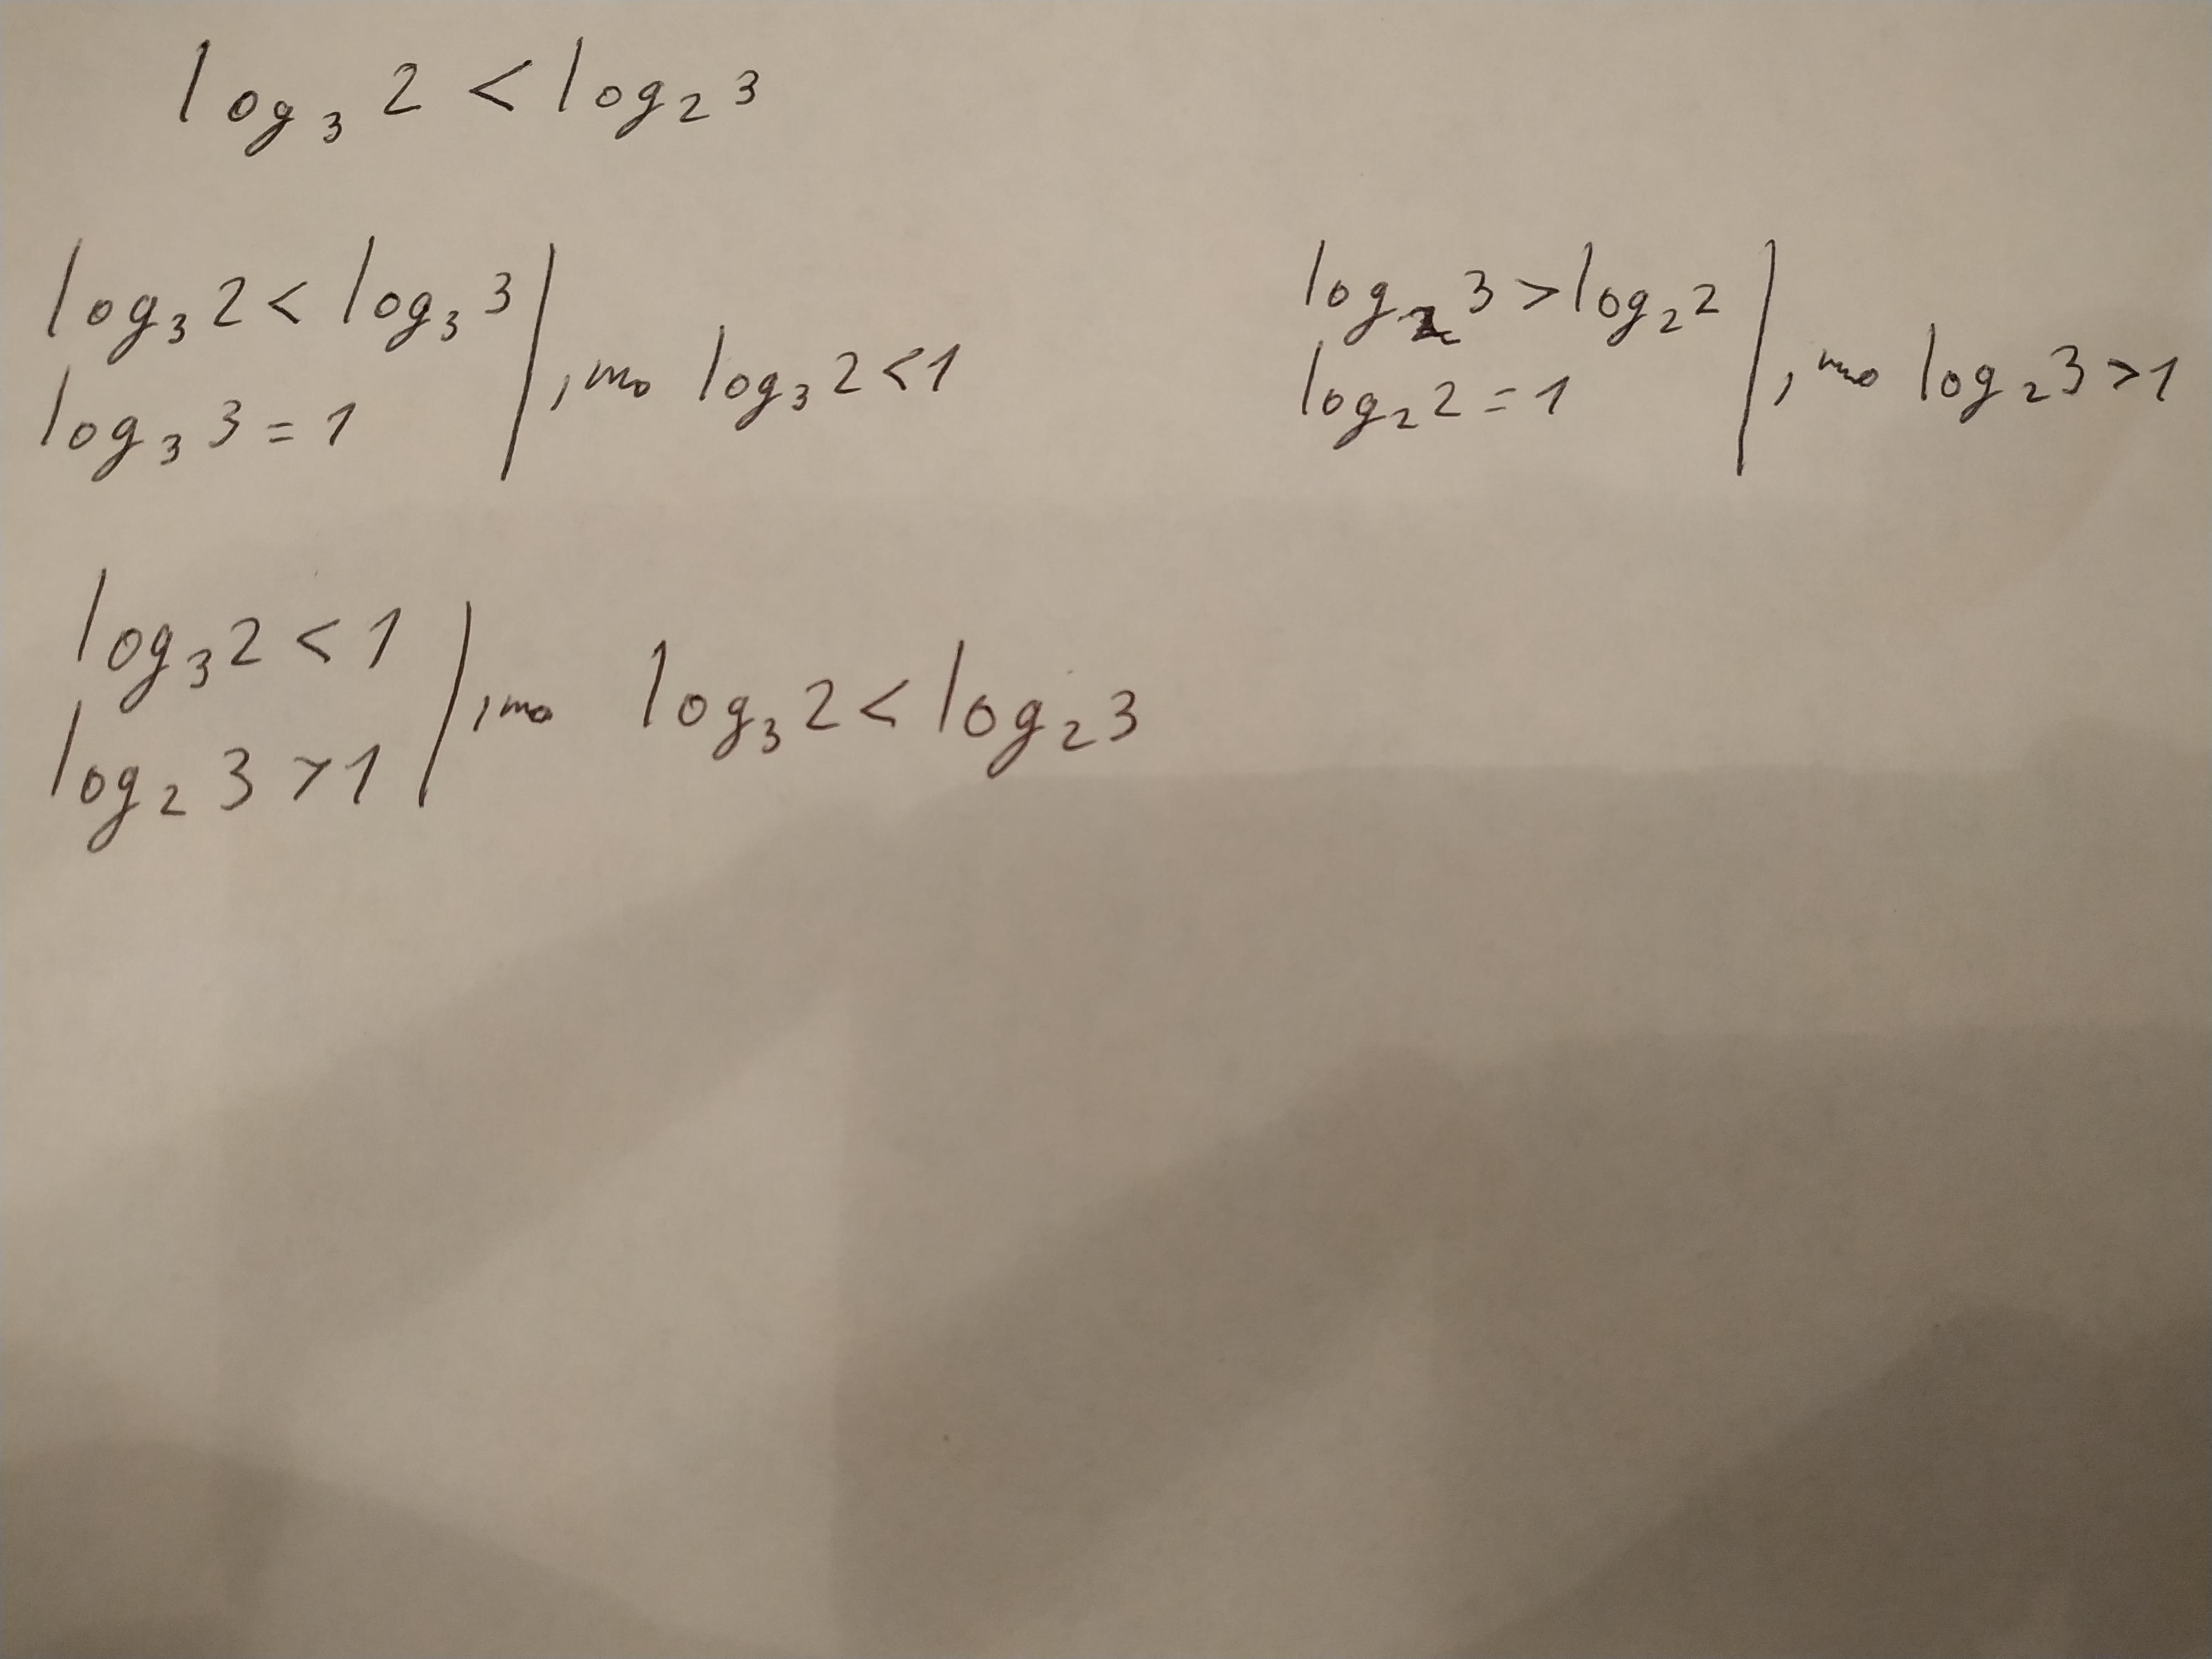 log₃ 2 < log₂ 3
log₃ 2 < log₃ 3
log₃ 3 = 1
, то log₃ 2 < 1
log₂ 3 > log₂ 2
log₂ 2 = 1
, то log₂ 3 > 1
log₃ 2 < 1
log₂ 3 > 1
, то log₃ 2 < log₂ 3